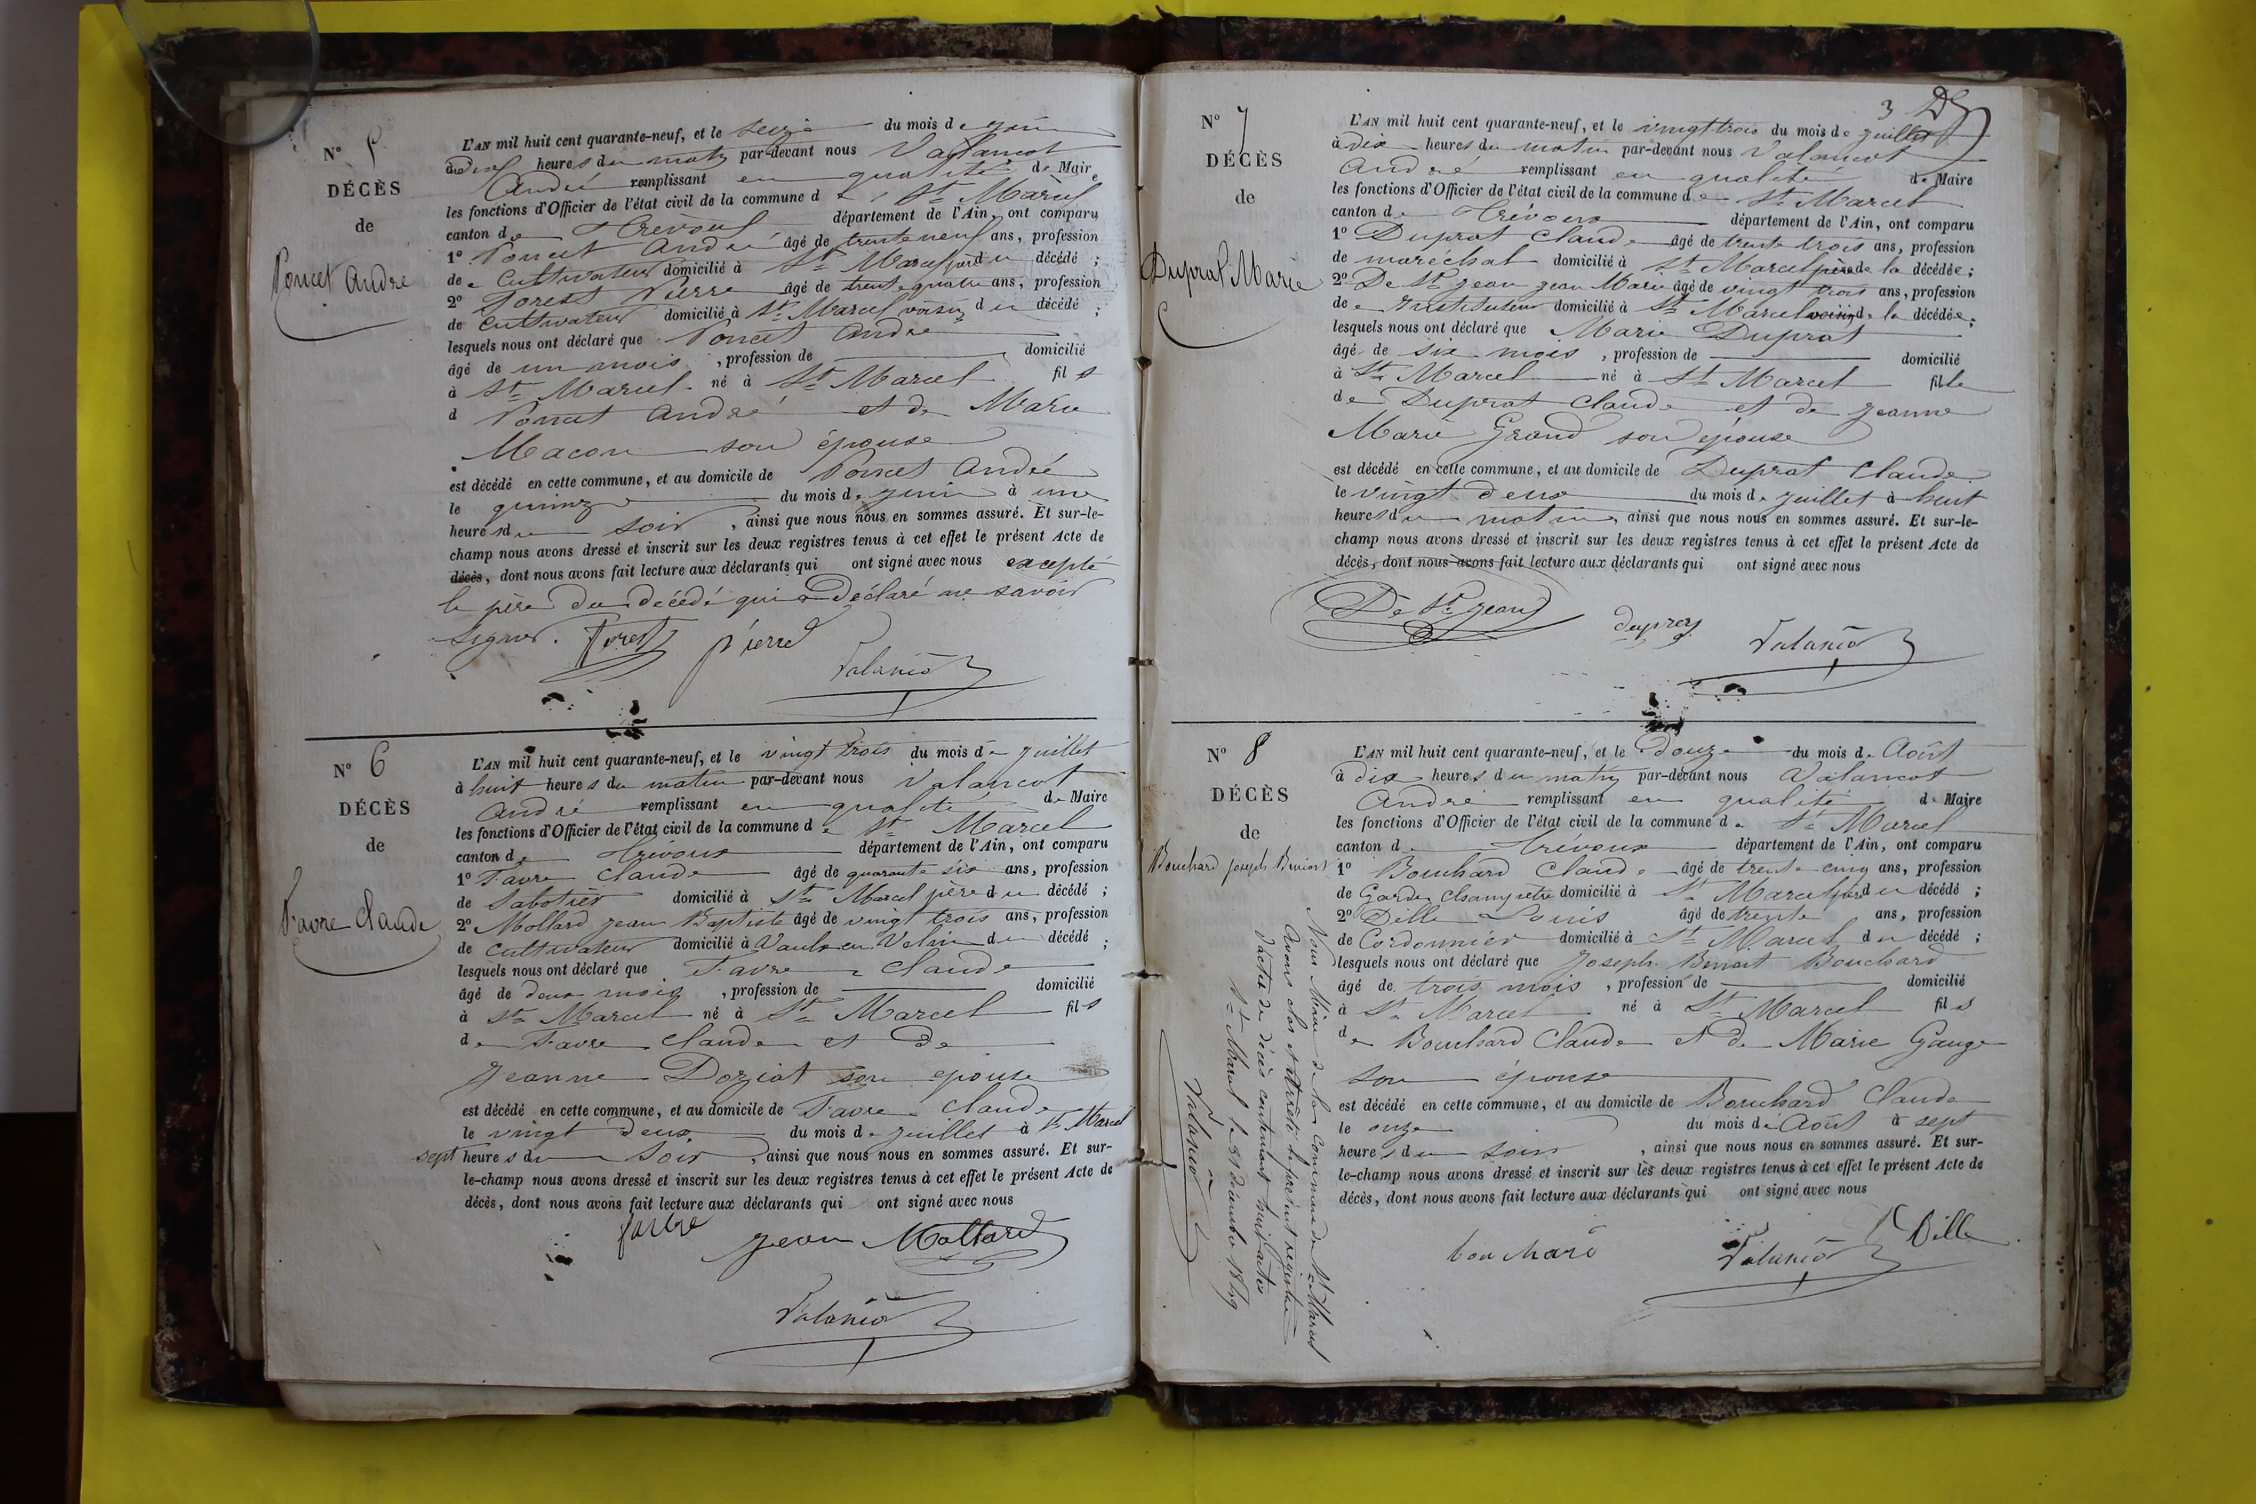 N° 5
DÉCÈS
de
Poncet André
L'AN mil huit cent quarante-neuf, et le seize du mois de juin
à dix heures du matin par-devant nous Valancot
André remplissant en qualité de Maire
les fonctions d'Officier de l'état civil de la commune de St Marcel
canton de Trévoux département de l'Ain, ont comparu
1° Poncet André âgé de trente neuf ans, profession
de cultivateur domicilié à St Marcel père du décédé ;
2° Forest Pierre âgé de trente quatre ans, profession
de cultivateur domicilié à St Marcel voisin du décédé ;
lesquels nous ont déclaré que Poncet André
âgé de un mois , profession de domicilié
à St Marcel né à St Marcel fils
d Poncet André et de Marie
Macon son épouse
est décédé en cette commune, et au domicile de Poncet André
le quinze du mois de juin à une
heures du soir , ainsi que nous nous en sommes assuré. Et sur-le-
champ nous avons dressé et inscrit sur les deux registres tenus à cet effet le présent Acte de
décès, dont nous avons fait lecture aux déclarants qui ont signé avec nous excepté
le père du décédé qui a déclaré ne savoir
signer. Forest pierre
Valancot
N° 6
DÉCÈS
de
Favre Claude
L'AN mil huit cent quarante-neuf, et le vingt trois du mois de juillet
à huit heures du matin par-devant nous Valancot
André remplissant en qualité de Maire
les fonctions d'Officier de l'état civil de la commune de St Marcel
canton de Trévoux département de l'Ain, ont comparu
1° Favre Claude âgé de quarante six ans, profession
de Sabotier domicilié à St Marcel père du décédé ;
2° Mollard jean Baptiste âgé de vingt trois ans, profession
de cultivateur domicilié à Vaulx en Velin du décédé ;
lesquels nous ont déclaré que Favre Claude
âgé de deux mois , profession de domicilié
à St Marcel né à St Marcel fils
de Favre Claude et de
Jeanne Doziat son épouse
est décédé en cette commune, et au domicile de Favre Claude
le vingt deux du mois de juillet à St Marcel
sept heures du soir , ainsi que nous nous en sommes assuré. Et sur-
le-champ nous avons dressé et inscrit sur les deux registres tenus à cet effet le présent Acte de
décès, dont nous avons fait lecture aux déclarants qui ont signé avec nous
favre jean Mollard
Valancot
3
N° 7
DÉCÈS
de
Duprat Marie
L'AN mil huit cent quarante-neuf, et le vingt trois du mois de juillet
à dix heures du matin par-devant nous Valancot
André remplissant en qualité de Maire
les fonctions d'Officier de l'état civil de la commune de St Marcel
canton de Trévoux département de l'Ain, ont comparu
1° Duprat Claude âgé de trente trois ans, profession
de maréchal domicilié à St Marcel père de la décédée ;
2° De St jean jean Marie âgé de vingt trois ans, profession
de Instituteur domicilié à St Marcel voisin de la décédée ;
lesquels nous ont déclaré que Marie Duprat
âgé de six mois , profession de domicilié
à St Marcel né à St Marcel fille
de Duprat Claude et de jeanne
Marie Grand son épouse
est décédé en cette commune, et au domicile de Duprat Claude
le vingt deux du mois de juillet à huit
heures du matin , ainsi que nous nous en sommes assuré. Et sur-le-
champ nous avons dressé et inscrit sur les deux registres tenus à cet effet le présent Acte de
décès, dont nous avons fait lecture aux déclarants qui ont signé avec nous
De St jean
Valancot
N° 8
DÉCÈS
de
Bouchard joseph Benoit
L'AN mil huit cent quarante-neuf, et le douze du mois de Août
à dix heures du matin par-devant nous Valancot
André remplissant en qualité de Maire
les fonctions d'Officier de l'état civil de la commune de St Marcel
canton de Trévoux département de l'Ain, ont comparu
1° Bouchard Claude âgé de trente cinq ans, profession
de Garde champetre domicilié à St Marcel père du décédé ;
2° Dille Louis âgé de trente ans, profession
de Cordonnier domicilié à St Marcel du décédé ;
lesquels nous ont déclaré que Joseph Benoit Bouchard
âgé de trois mois , profession de domicilié
à St Marcel né à St Marcel fils
de Bouchard Claude et de Marie Gauge
son épouse
est décédé en cette commune, et au domicile de Bouchard Claude
le onze du mois de Août à sept
heures du soir , ainsi que nous nous en sommes assuré. Et sur-
le-champ nous avons dressé et inscrit sur les deux registres tenus à cet effet le présent Acte de
décès, dont nous avons fait lecture aux déclarants qui ont signé avec nous
bouchard Valancot L Dille
Nous Maire de la Commune de St Marcel
Avons clos et Arrêté le présent registre
d'actes de décès contenant huit actes
St Marcel le 31 décembre 1849
Valancot